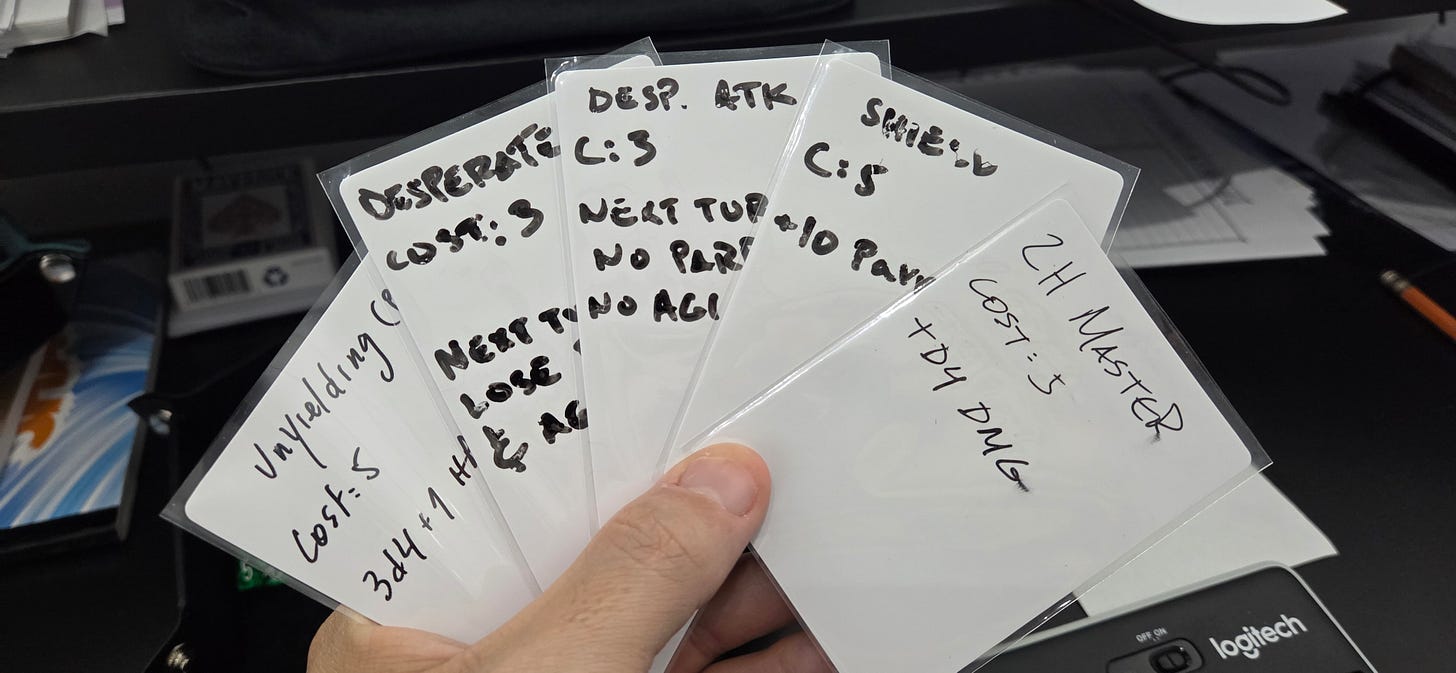 Unyielding (P
Cost: 5
3d4+1 HP
DESPERATE
COST: 3
NEXT TU
LOSE
& AG
DESP. ATK
C: 3
NEXT TUR
NO PARR
NO AGI
SHIELD
C: 5
+10 Parr
2H MASTER
COST: 5
+D4 DMG
OFF ON
logitech